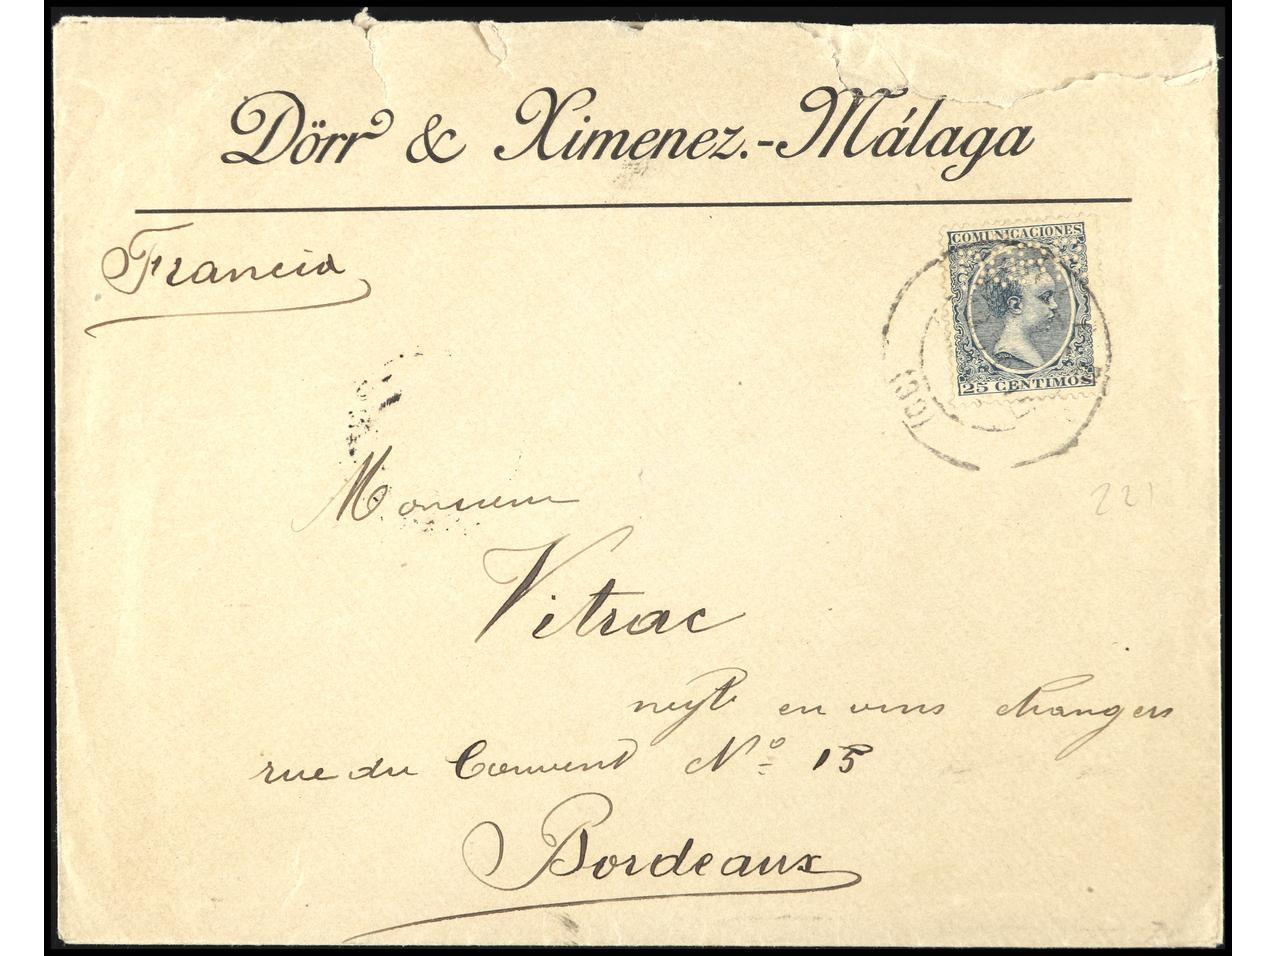 Dörr & Ximenez.-Málaga
Francia
COMUNICACIONES
25 CENTIMOS
Monsieur
221
Vitrac
negt en vins étrangers
rue du Couvent Nº 15
Bordeaux